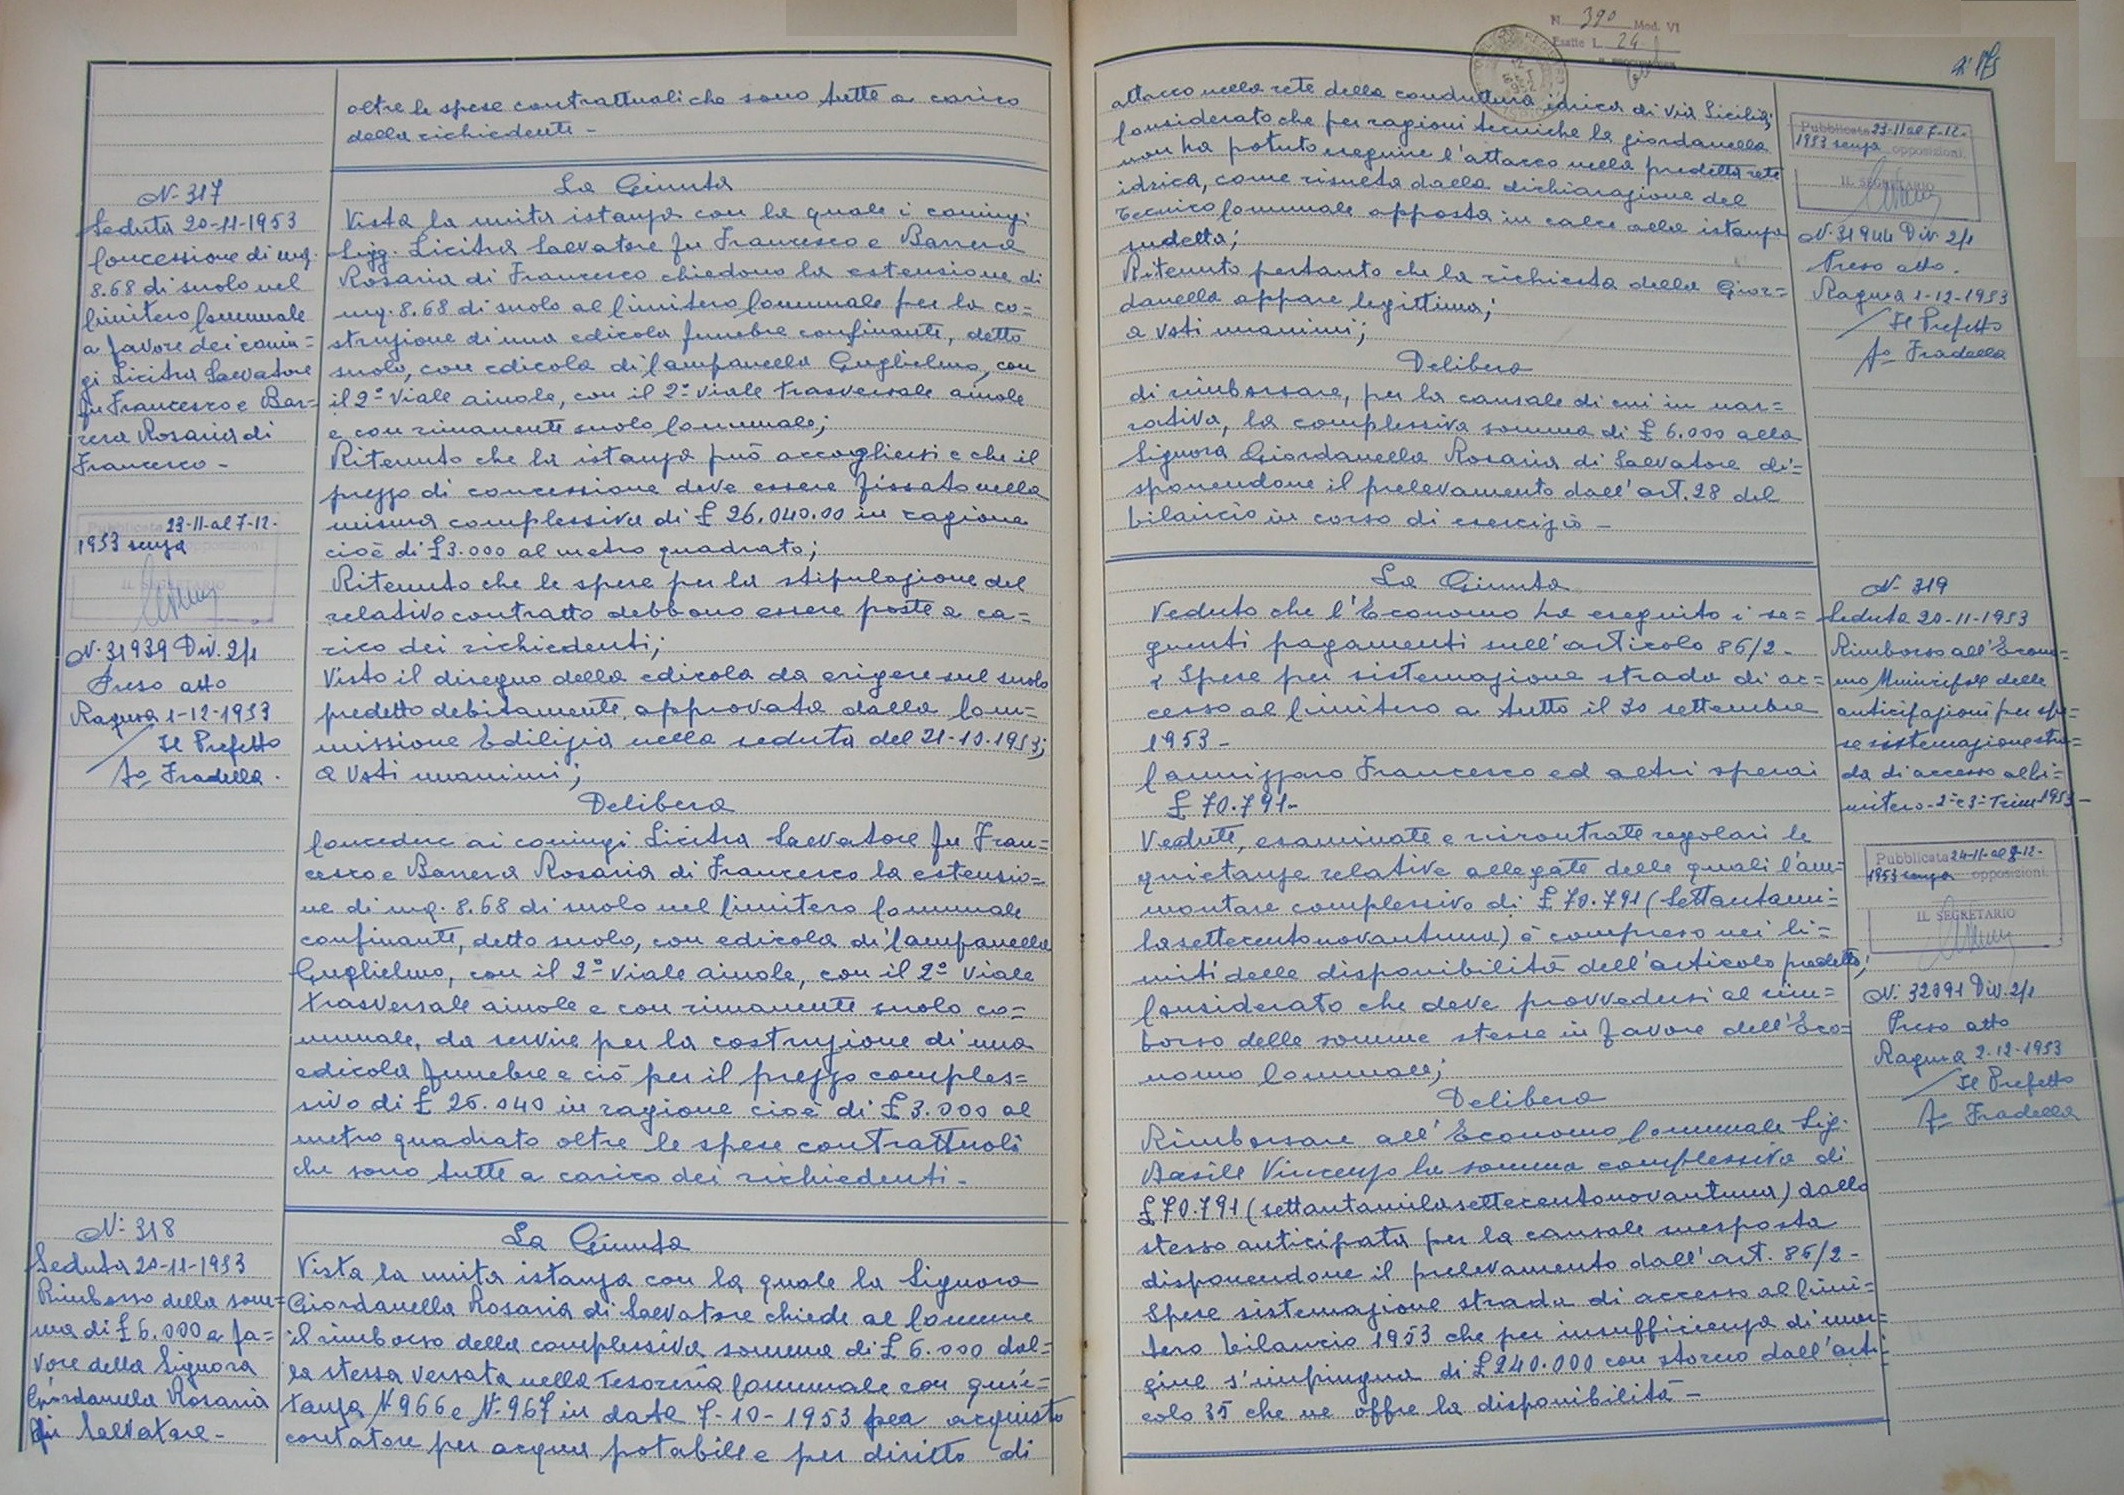 oltre le spese contrattuali che sono tutte a carico
della richiedente -
N. 317
Seduta 20-11-1953
Concessione di mq.
8.68 di suolo nel
Cimitero Comunale
a favore dei coniu=
gi Licitra Salvatore
fu Francesco e Bar=
rera Rosaria di
Francesco -
Pubblicata 23-11 al 7-12-
1953 senza opposizioni.
IL SEGRETARIO
N. 31939 Div. 2/1
Preso atto
Ragusa 1-12-1953
Il Prefetto
Fo Fradella.
La Giunta
Vista la unita istanza con la quale i coniugi
Sigg. Licitra Salvatore fu Francesco e Barrera
Rosaria di Francesco chiedono la estensione di
mq. 8.68 di suolo al Cimitero Comunale per la co=
struzione di una edicola funebre confinante, detto
suolo, con edicola di Campanella Guglielmo, con
il 2° viale aiuole, con il 2° viale trasversale aiuole
e con rimanente suolo Comunale;
Ritenuto che la istanza può accogliersi e che il
prezzo di concessione deve essere fissato nella
misura complessiva di £ 26.040.00 in ragione
cioè di £3.000 al metro quadrato;
Ritenuto che le spese per la stipulazione del
relativo contratto debbono essere poste a ca=
rico dei richiedenti;
Visto il disegno della edicola da erigere sul suolo
predetto debitamente approvato dalla Com=
missione Edilizia nella seduta del 21-10-1953;
a voti unanimi;
Delibera
Concedere ai coniugi Licitra Salvatore fu Fran=
cesco e Barrera Rosaria di Francesco la estensio=
ne di mq. 8.68 di suolo nel Cimitero Comunale
confinante, detto suolo, con edicola di Campanella
Guglielmo, con il 2° viale aiuole, con il 2° viale
trasversale aiuole e con rimanente suolo co=
munale, da servire per la costruzione di una
edicola funebre e ciò per il prezzo comples=
sivo di £ 26.040 in ragione cioè di £ 3.000 al
metro quadrato oltre le spese contrattuali
che sono tutte a carico dei richiedenti -
N. 318
Seduta 20-11-1953
Rimborso della som=
ma di £ 6.000 a fa=
vore della Signora
Giordanella Rosaria
di Salvatore -
La Giunta
Vista la unita istanza con la quale la Signora
Giordanella Rosaria di Salvatore chiede al Comune
il rimborso della complessiva somma di £ 6.000 dal=
la stessa versata nella Tesoreria Comunale con quie=
tanza N 966 e N. 967 in data 7-10-1953 per acquisto
contatore per acqua potabile e per diritto di
N. 390 Mod. VI
Esatte L. 24
attacco nella rete della conduttura idrica di Via Sicilia;
Considerato che per ragioni tecniche la Giordanella
non ha potuto eseguire l'attacco nella predetta rete
idrica, come risulta dalla dichiarazione del
Tecnico Comunale apposta in calce alla istanza
sudetta;
Ritenuto pertanto che la richiesta della Gior=
danella appare legittima;
a voti unanimi;
Delibera
di rimborsare, per la causale di cui in nar=
rativa, la complessiva somma di £ 6.000 alla
Signora Giordanella Rosaria di Salvatore di=
sponendone il prelevamento dall'art. 28 del
bilancio in corso di esercizio -
Pubblicata 23-11 al 7-12-
1953 senza opposizioni.
IL SEGRETARIO
N. 31944 Div. 2/1
Preso atto.
Ragusa 1-12-1953
Il Prefetto
Fo Fradella
La Giunta
Veduto che l'Economo ha eseguito i se=
guenti pagamenti sull'articolo 86/2-
"Spese per sistemazione strada di ac=
cesso al Cimitero a tutto il 30 settembre
1953 -
Cannizzaro Francesco ed altri operai
£ 70.791-
Vedute, esaminate e riscontrate regolari le
quietanze relative allegate delle quali l'am=
montare complessivo di £ 70.791 (Settantami=
lasettecentonovantuna) è compreso nei li=
miti delle disponibilità dell'articolo predetto;
Considerato che deve provvedersi al rim=
borso delle somme stesse in favore dell'Eco=
nomo Comunale;
Delibera
Rimborsare all'Economo Comunale Sig.
Basile Vincenzo la somma complessiva di
£ 70.791 (settantamilasettecentonovantuna) dallo
stesso anticipata per la causale suesposta
disponendone il prelevamento dall'art. 86/2-
Spese sistemazione strada di accesso al Cimi=
tero bilancio 1953 che per insufficienza di mar=
gine s'impingua di £ 240.000 con storno dall'arti=
colo 35 che ne offre la disponibilità -
N. 319
Seduta 20-11-1953
Rimborso all'Econo=
mo Municipale delle
anticipazioni per spe=
se sistemazione stra=
da di accesso al Ci=
mitero - 2° e 3° Trim 1953 -
Pubblicata 24-11- al 8-12-
1953 senza opposizioni.
IL SEGRETARIO
N. 32091 Div. 2/1
Preso atto
Ragusa 2-12-1953
Il Prefetto
Fo Fradella